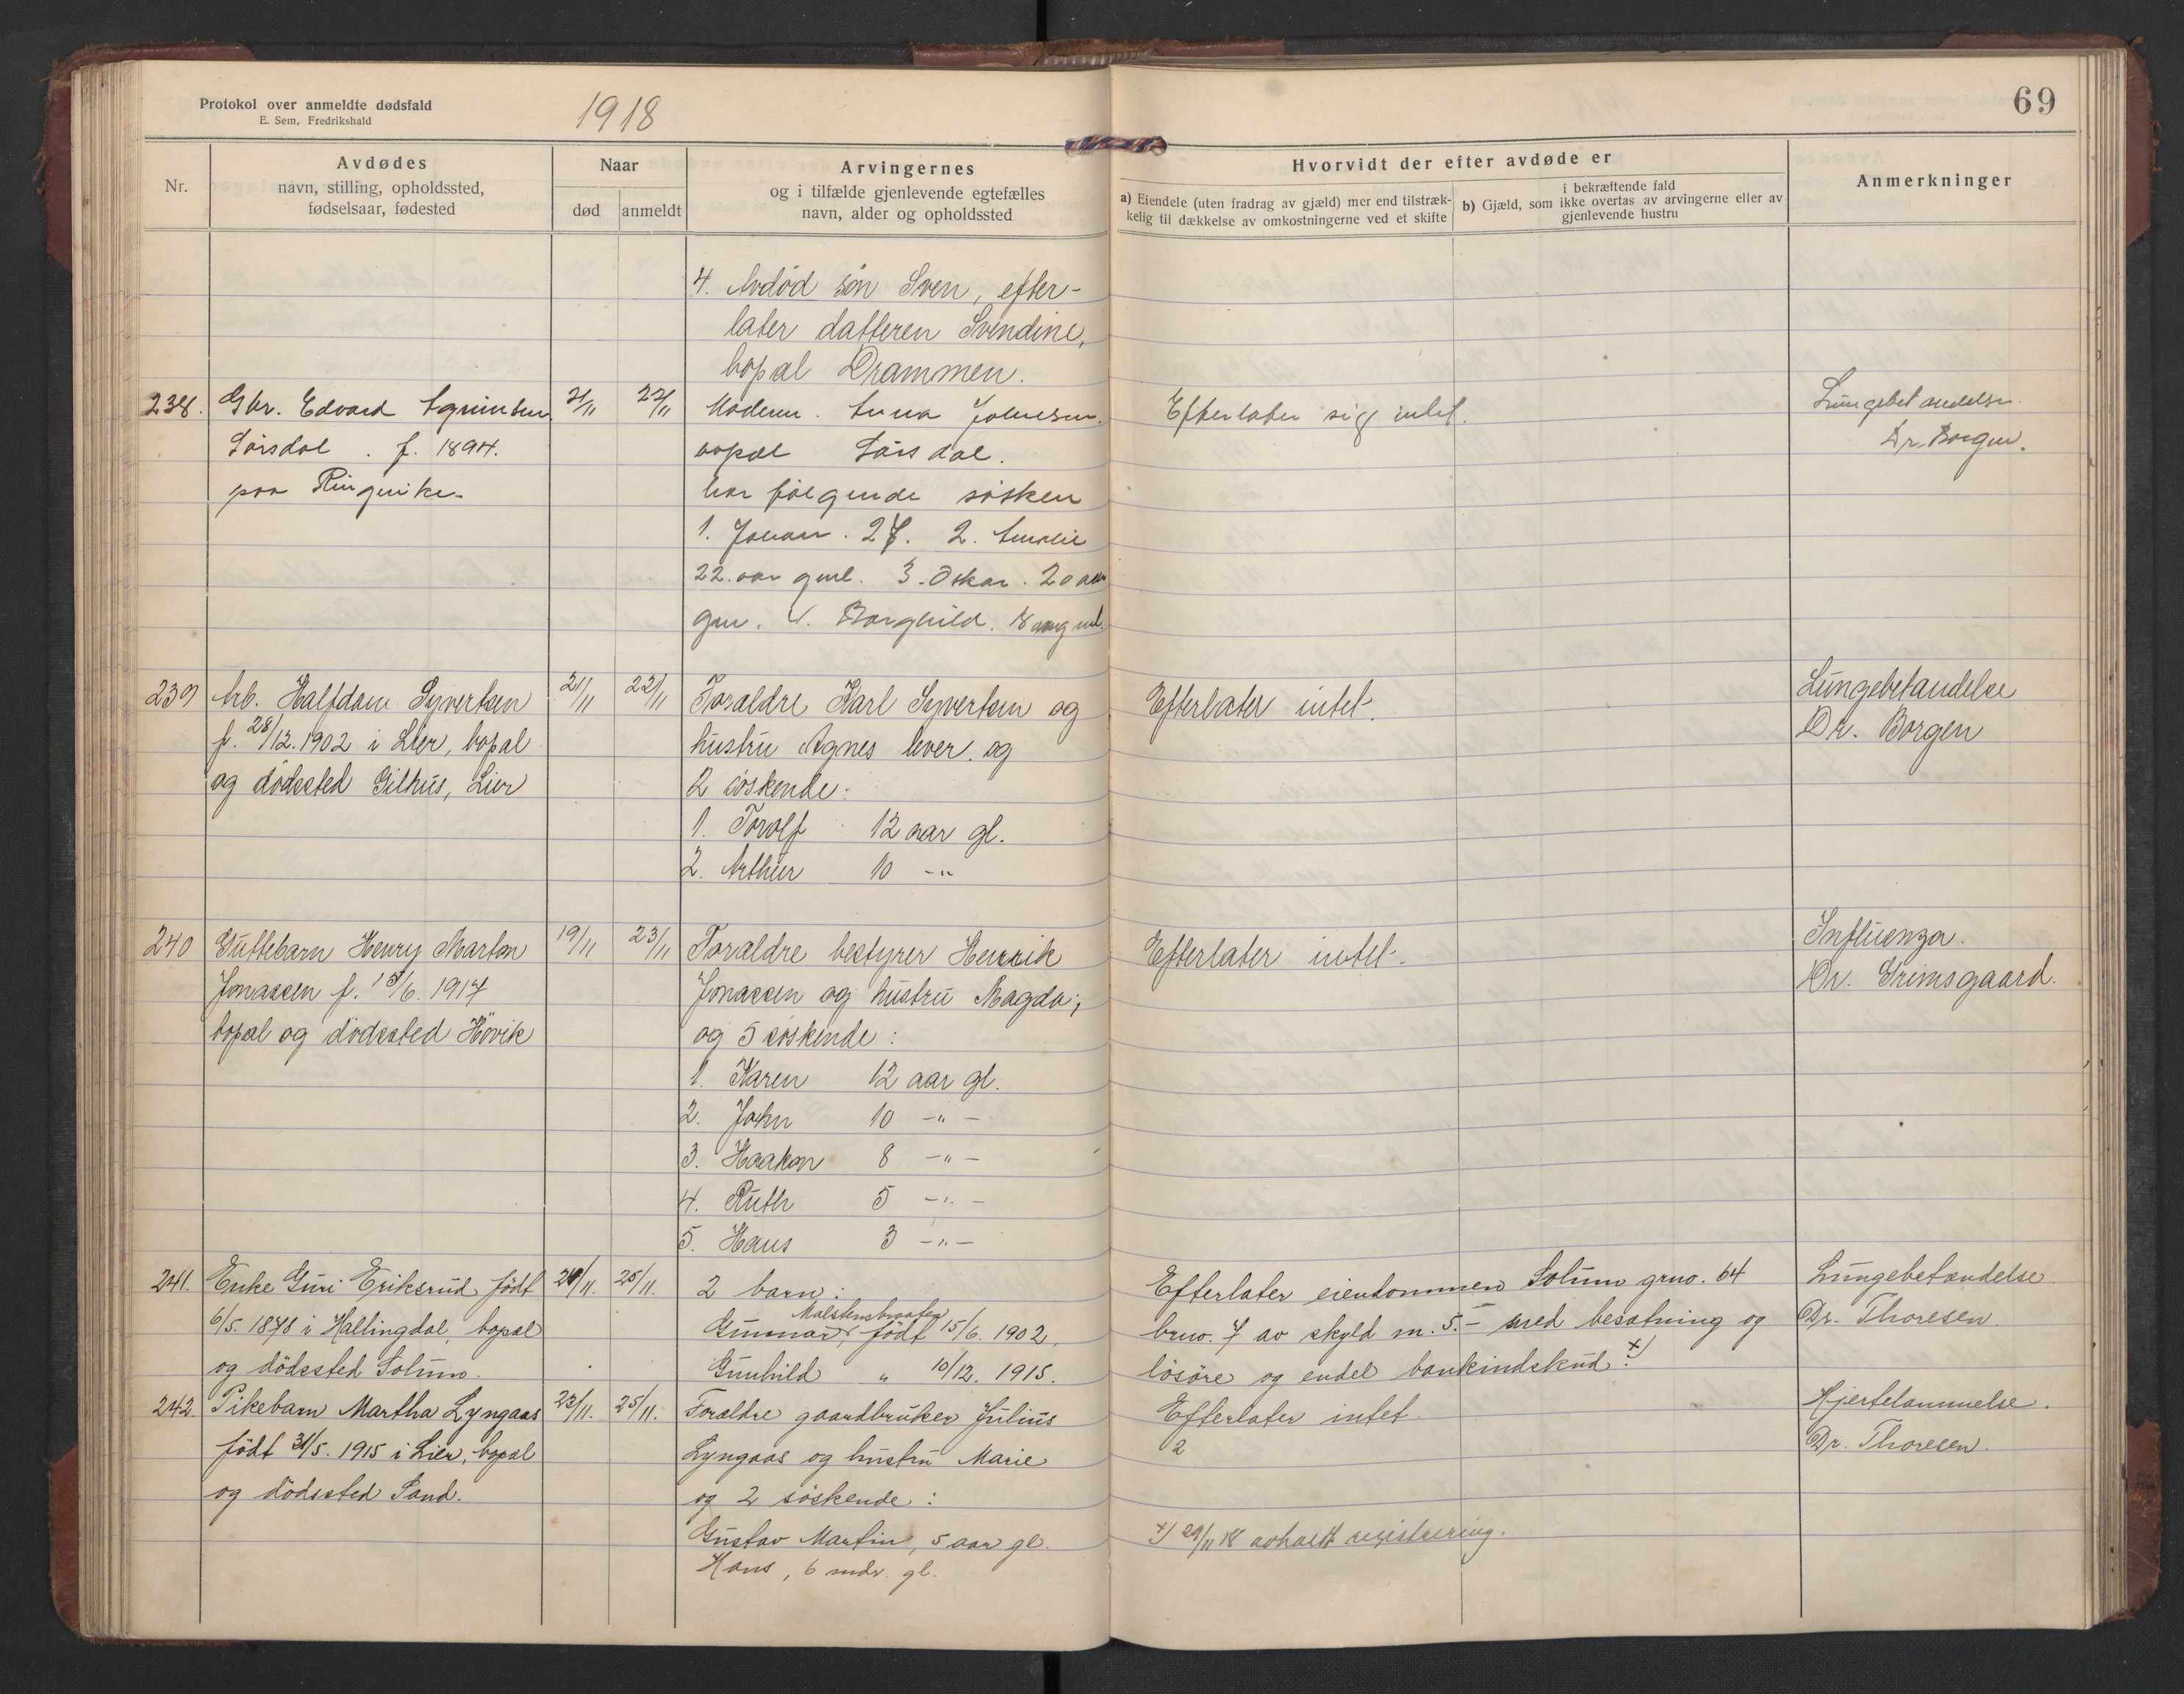 Protokol over anmeldte dødsfald
E. Sem, Fredrikshald
1918
69
Nr.
Avdødes
navn, stilling, opholdssted,
fødselsaar, fødested
Naar
død
anmeldt
Arvingernes
og i tilfælde gjenlevende egtefælles
navn, alder og opholdssted
Hvorvidt der efter avdøde er
a) Eiendele (uten fradrag av gjæld) mer end tilstræk-
kelig til dækkelse av omkostningerne ved et skifte
i bekræftende fald
b) Gjæld, som ikke overtas av arvingerne eller av
gjenlevende hustru
Anmerkninger
4. Avdød søn Sven, efter-
later datteren Svendine,
bopæl Drammen.
238. Gbr. Edvard
Sørsdal . f. 1894.
paa Ringerike.
21/11 22/11
Moderen. Anna Johnesen.
bopæl Sørsdal.
har følgende søsken
1. Johan . 27. 2. Amalie
22. aar gml. 3. Oskar . 20 aar
gm. 4. Borghild. 18 aar gml.
Efterlater sig intet.
Lungebetændelse
Dr. Borgen.
239 Arb. Halfdan Syvertsen
f. 28/12. 1902 i Lier, bopæl
og dødssted Gilhus, Lier
21/11 22/11
Forældre Karl Syvertsen og
hustru Agnes lever. og
2 søskende:
1. Torolf 12 aar gl.
2. Arthur 10 -"-
Efterlater intet.
Lungebetændelse
Dr. Borgen
240 Guttebarn Henry Marton
Jonassen f. 15/6. 1917
bopæl og dødssted Høvik
19/11 23/11
Forældre bestyrer Henrik
Jonassen og hustru Magda;
og 5 søskende :
1. Karen 12 aar gl.
2. John 10 -"-
3. Haakon 8 -"-
4. Ruth 5 -"-
5. Hans 3 -"-
Efterlater intet.
Influenza.
Dr. Grimsgaard.
241. Enke Guri Eriksrud, født
6/5. 1878 i Hallingdal, bopæl
og dødssted Solum.
25/11.
2 barn:
Gunnar, født 15/6. 1902.
Gunhild " 10/12. 1915.
Efterlater eiendommen Solum grno. 64
brno. 7 av skyld m. 5.- med besætning og
løsøre og endel bankindskud. x)
Lungebetændelse
Dr. Thoresen.
242. Pikebarn Martha Lyngaas
født 31/5. 1915 i Lier, bopæl
og dødssted Sand.
22/11. 25/11.
Forældre gaardbruker Julius
Lyngaas og hustru Marie
og 2 søskende :
Gustav Martin, 5 aar gl.
Hans, 6 mdr. gl.
Efterlater intet
2
Hjertelammelse.
Dr. Thoresen.
x) 29/11 18 avholdt registrering.